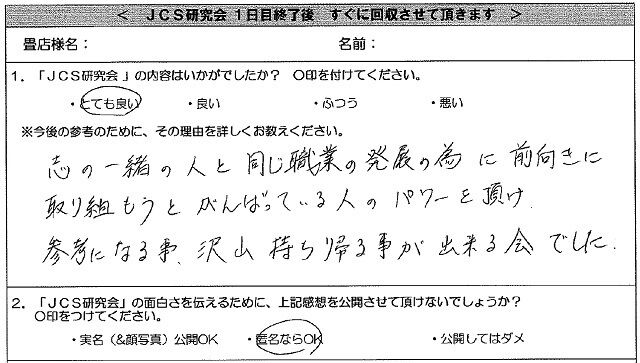 ＜ JCS研究会 1日目終了後 すぐに回収させて頂きます ＞
畳店様名： 名前：
1．「JCS研究会」の内容はいかがでしたか？ 〇印を付けてください。
・とても良い ・良い ・ふつう ・悪い
※今後の参考のために、その理由を詳しくお教えください。
志の一緒の人と同じ職業の発展の為に前向きに
取り組もうとがんばっている人のパワーを頂け
参考になる事、沢山持ち帰る事が出来る会でした.
2．「JCS研究会」の面白さを伝えるために、上記感想を公開させて頂けないでしょうか？
〇印をつけてください。
・実名（&顔写真）公開OK ・匿名ならOK ・公開してはダメ